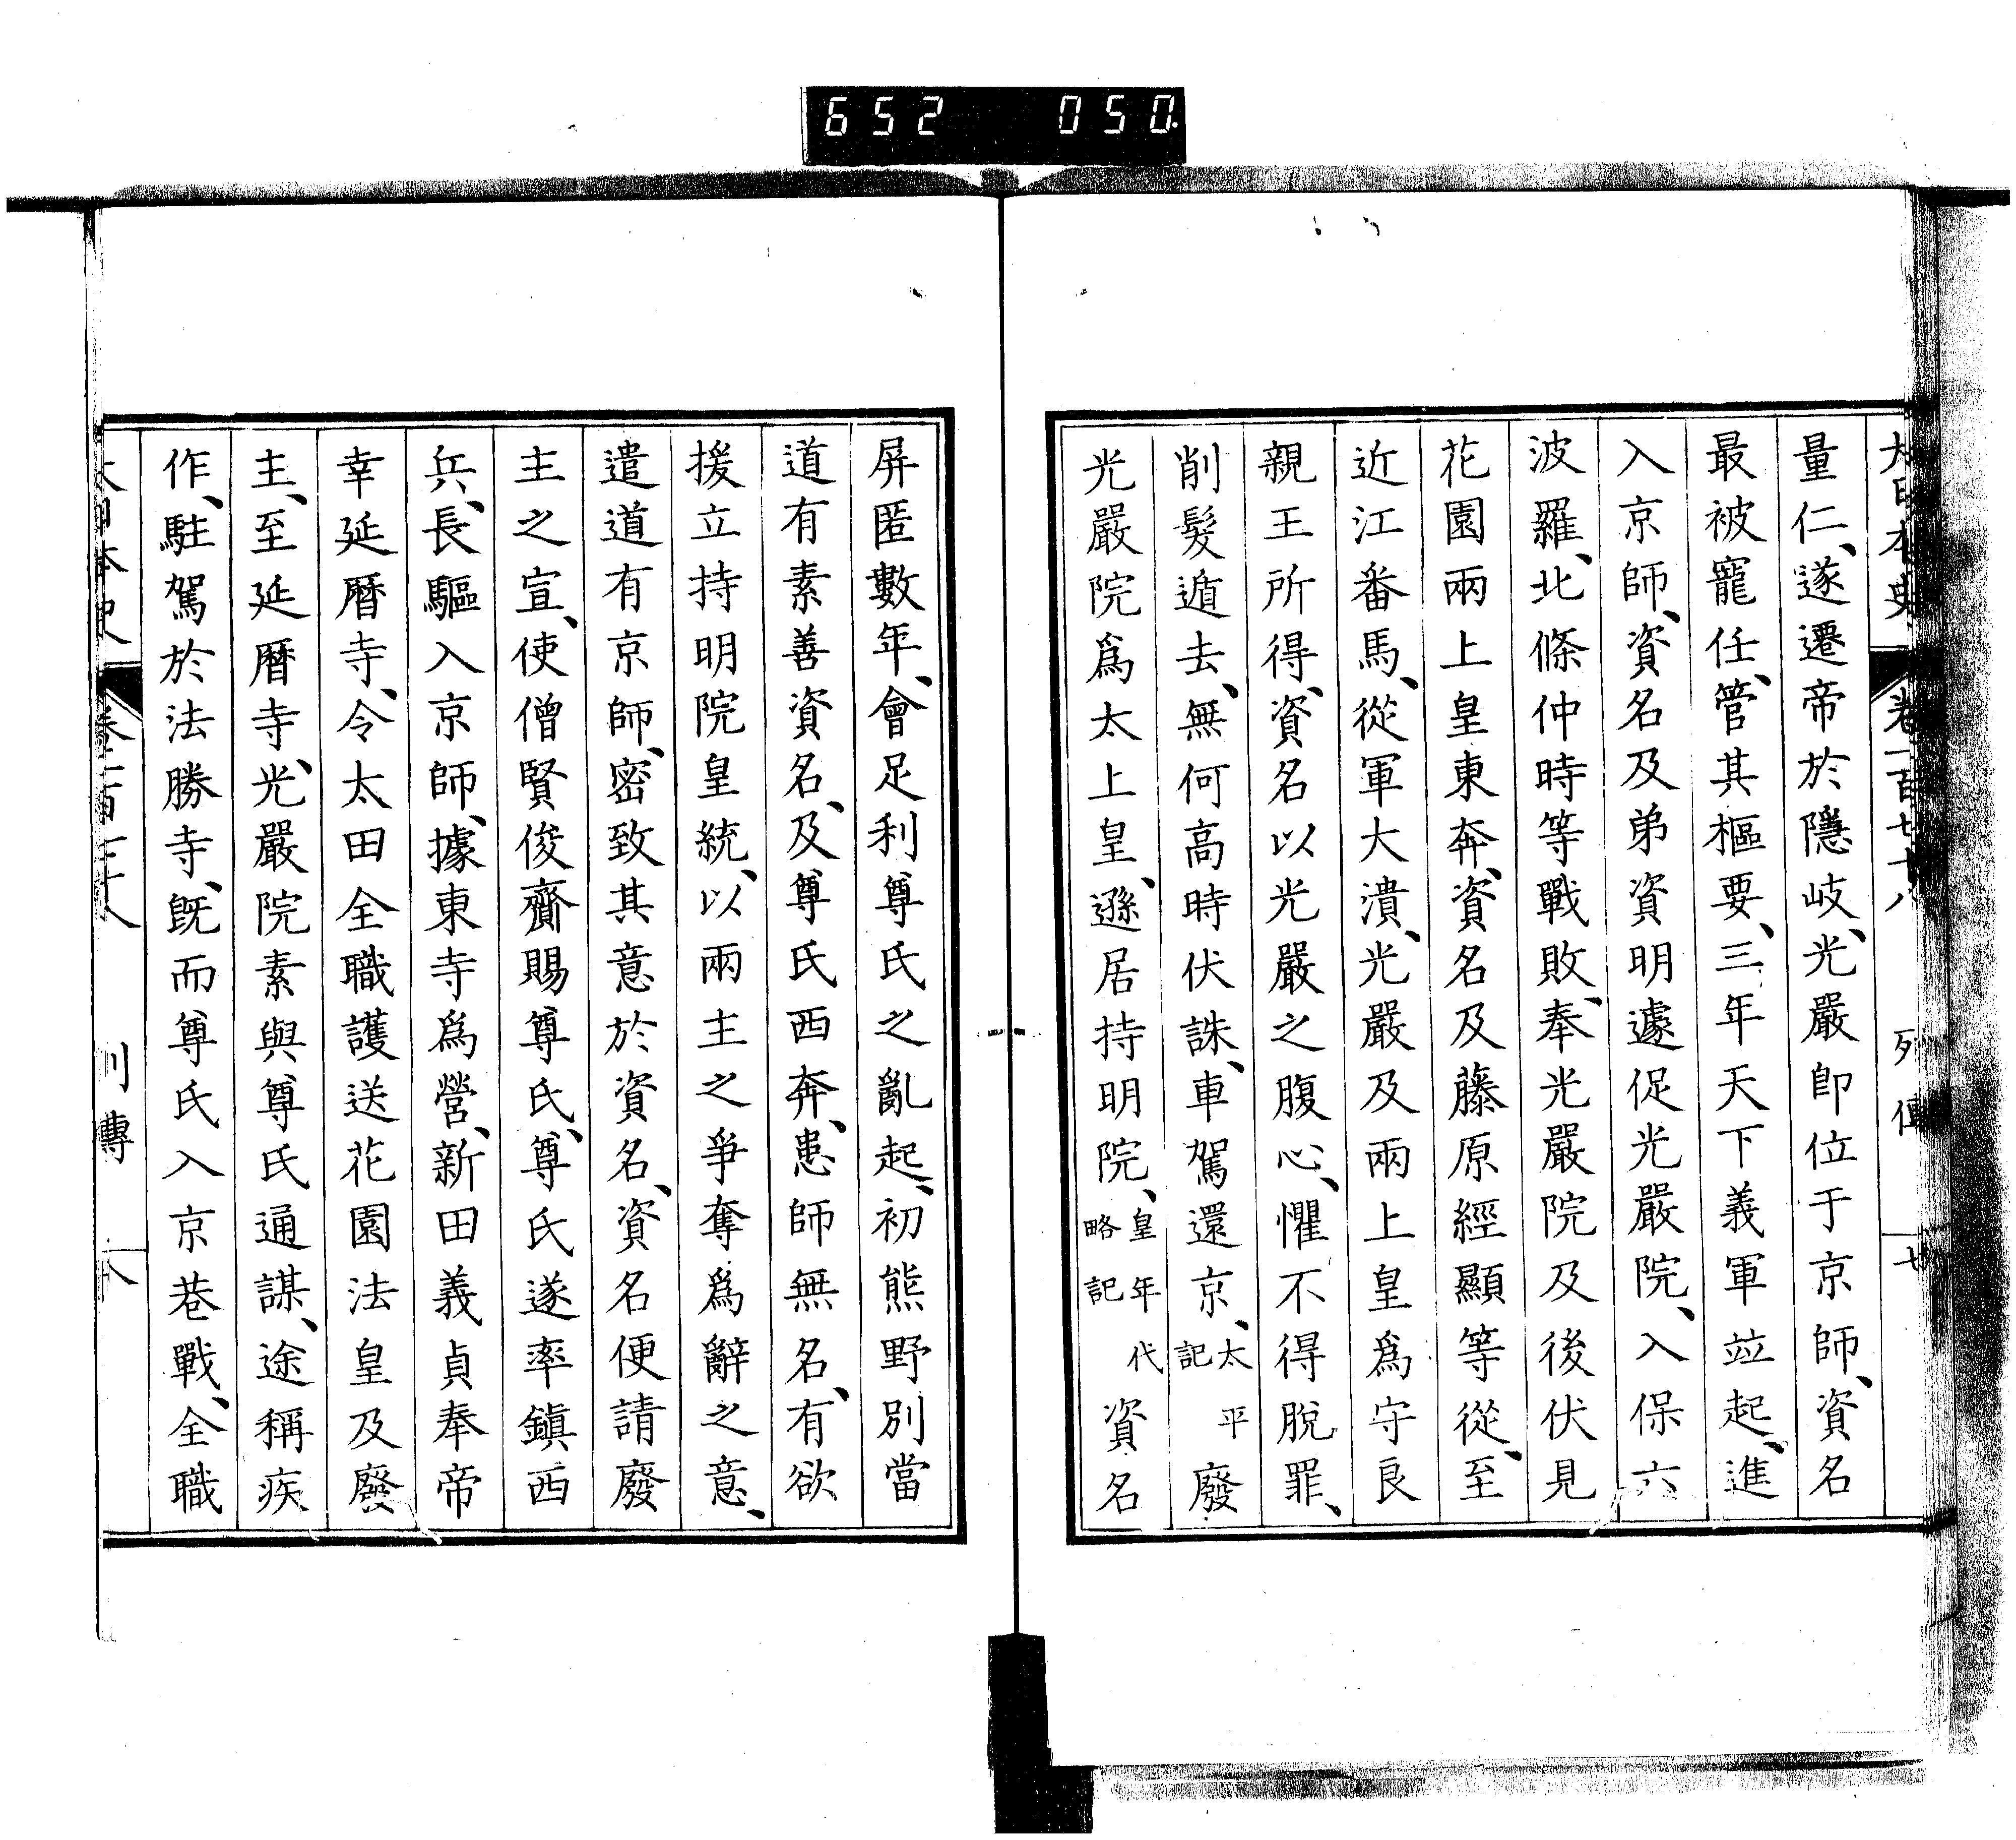 652 050
大日本史 卷一百七十八 列傳 七
量仁、遂遷帝於隱岐、光嚴卽位于京師、資名
最被寵任、管其樞要、三年天下義軍竝起、進
入京師、資名及弟資明遽促光嚴院、入保六
波羅、北條仲時等戰敗、奉光嚴院及後伏見
花園兩上皇東奔、資名及藤原經顯等從、至
近江番馬、從軍大潰、光嚴及兩上皇爲守良
親王所得、資名以光嚴之腹心、懼不得脫罪、
削髮遁去、無何高時伏誅、車駕還京、太平記廢
光嚴院爲太上皇、遜居持明院、皇年代略記資名
屏匿數年、會足利尊氏之亂起、初熊野別當
道有素善資名、及尊氏西奔、患師無名、有欲
援立持明院皇統、以兩主之爭奪爲辭之意、
遣道有京師、密致其意於資名、資名便請廢
主之宣、使僧賢俊齎賜尊氏、尊氏遂率鎭西
兵、長驅入京師、據東寺爲營、新田義貞奉帝
幸延曆寺、令太田全職護送花園法皇及廢
主、至延曆寺、光嚴院素與尊氏通謀、途稱疾
作、駐駕於法勝寺、旣而尊氏入京巷戰、全職
大日本史 卷一百七十八 列傳 八